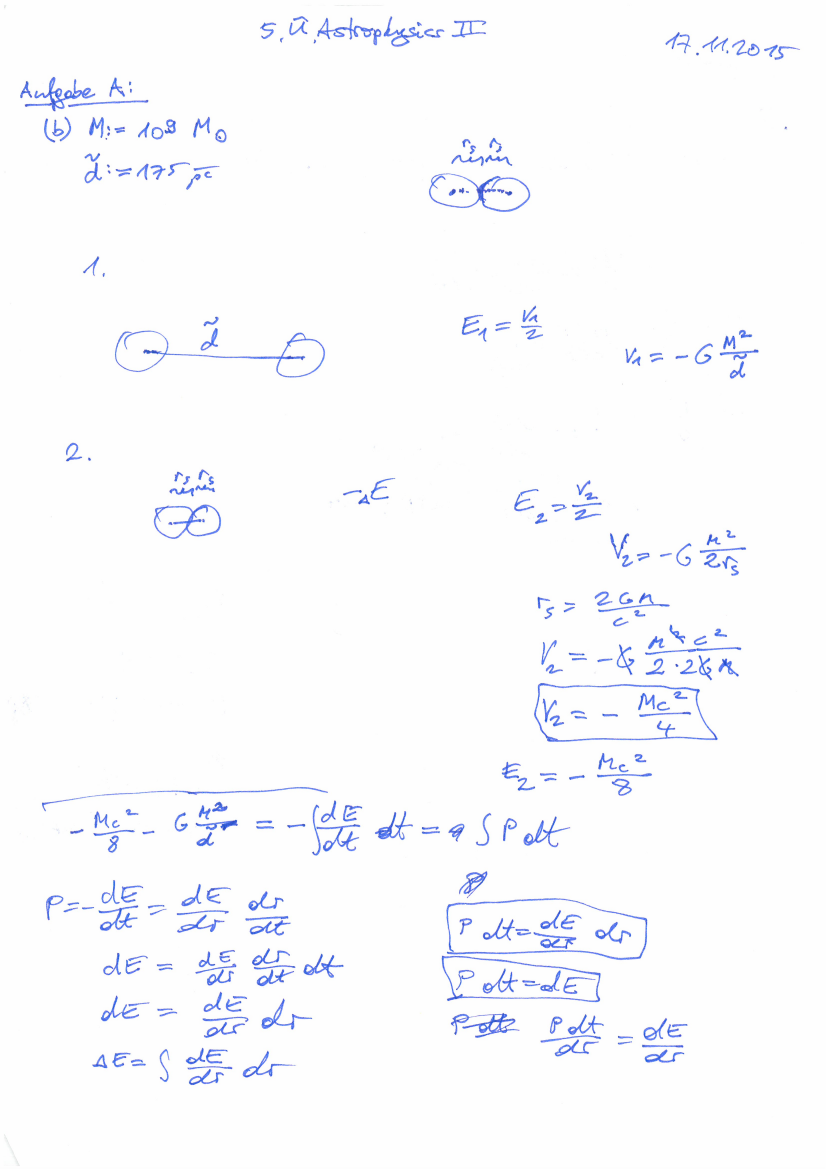 5. Ü. Astrophysics II
17.11.2015
Aufgabe A:
(b) M:= 10⁹ M⊙
d̃:=175 pc
rs rs
1.
d̃
E₁ = V₁/2
V₁ = - G M²/d̃
2.
rs rs
-ΔE
E₂ = V₂/2
V₂ = - G M²/2rs
rs = 2GM/c²
V₂ = - G M²c²/2·2GM
V₂ = - Mc²/4
E₂ = - Mc²/8
- Mc²/8 - G M²/d̃ = - ∫ dE/dt dt = ∫ P dt
P = - dE/dt = dE/dr dr/dt
dE = dE/dr dr/dt dt
dE = dE/dr dr
ΔE = ∫ dE/dr dr
P dt = dE/dr dr
P dt = dE
P dt P dt/dr = dE/dr